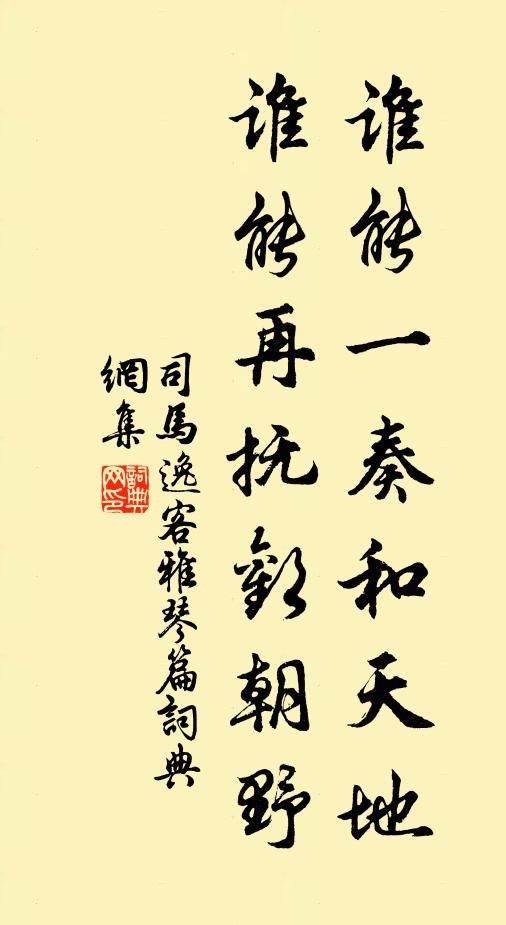 誰能一奏和天地
誰能再抚歡朝野
司馬逸客雅琴篇詞典
網集
詞典
网印